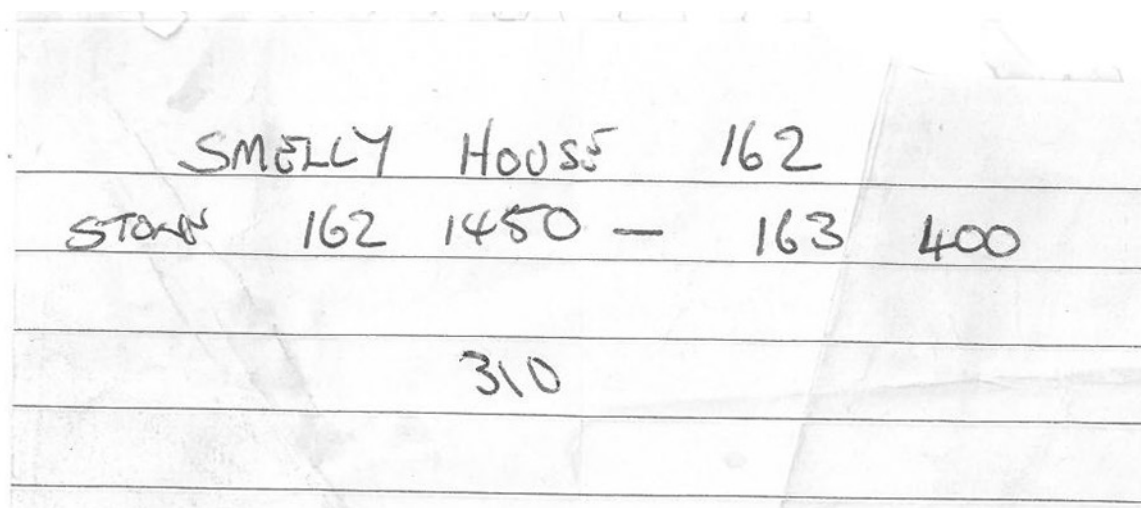 SMELLY HOUSE 162
162 1450 — 163 400
310